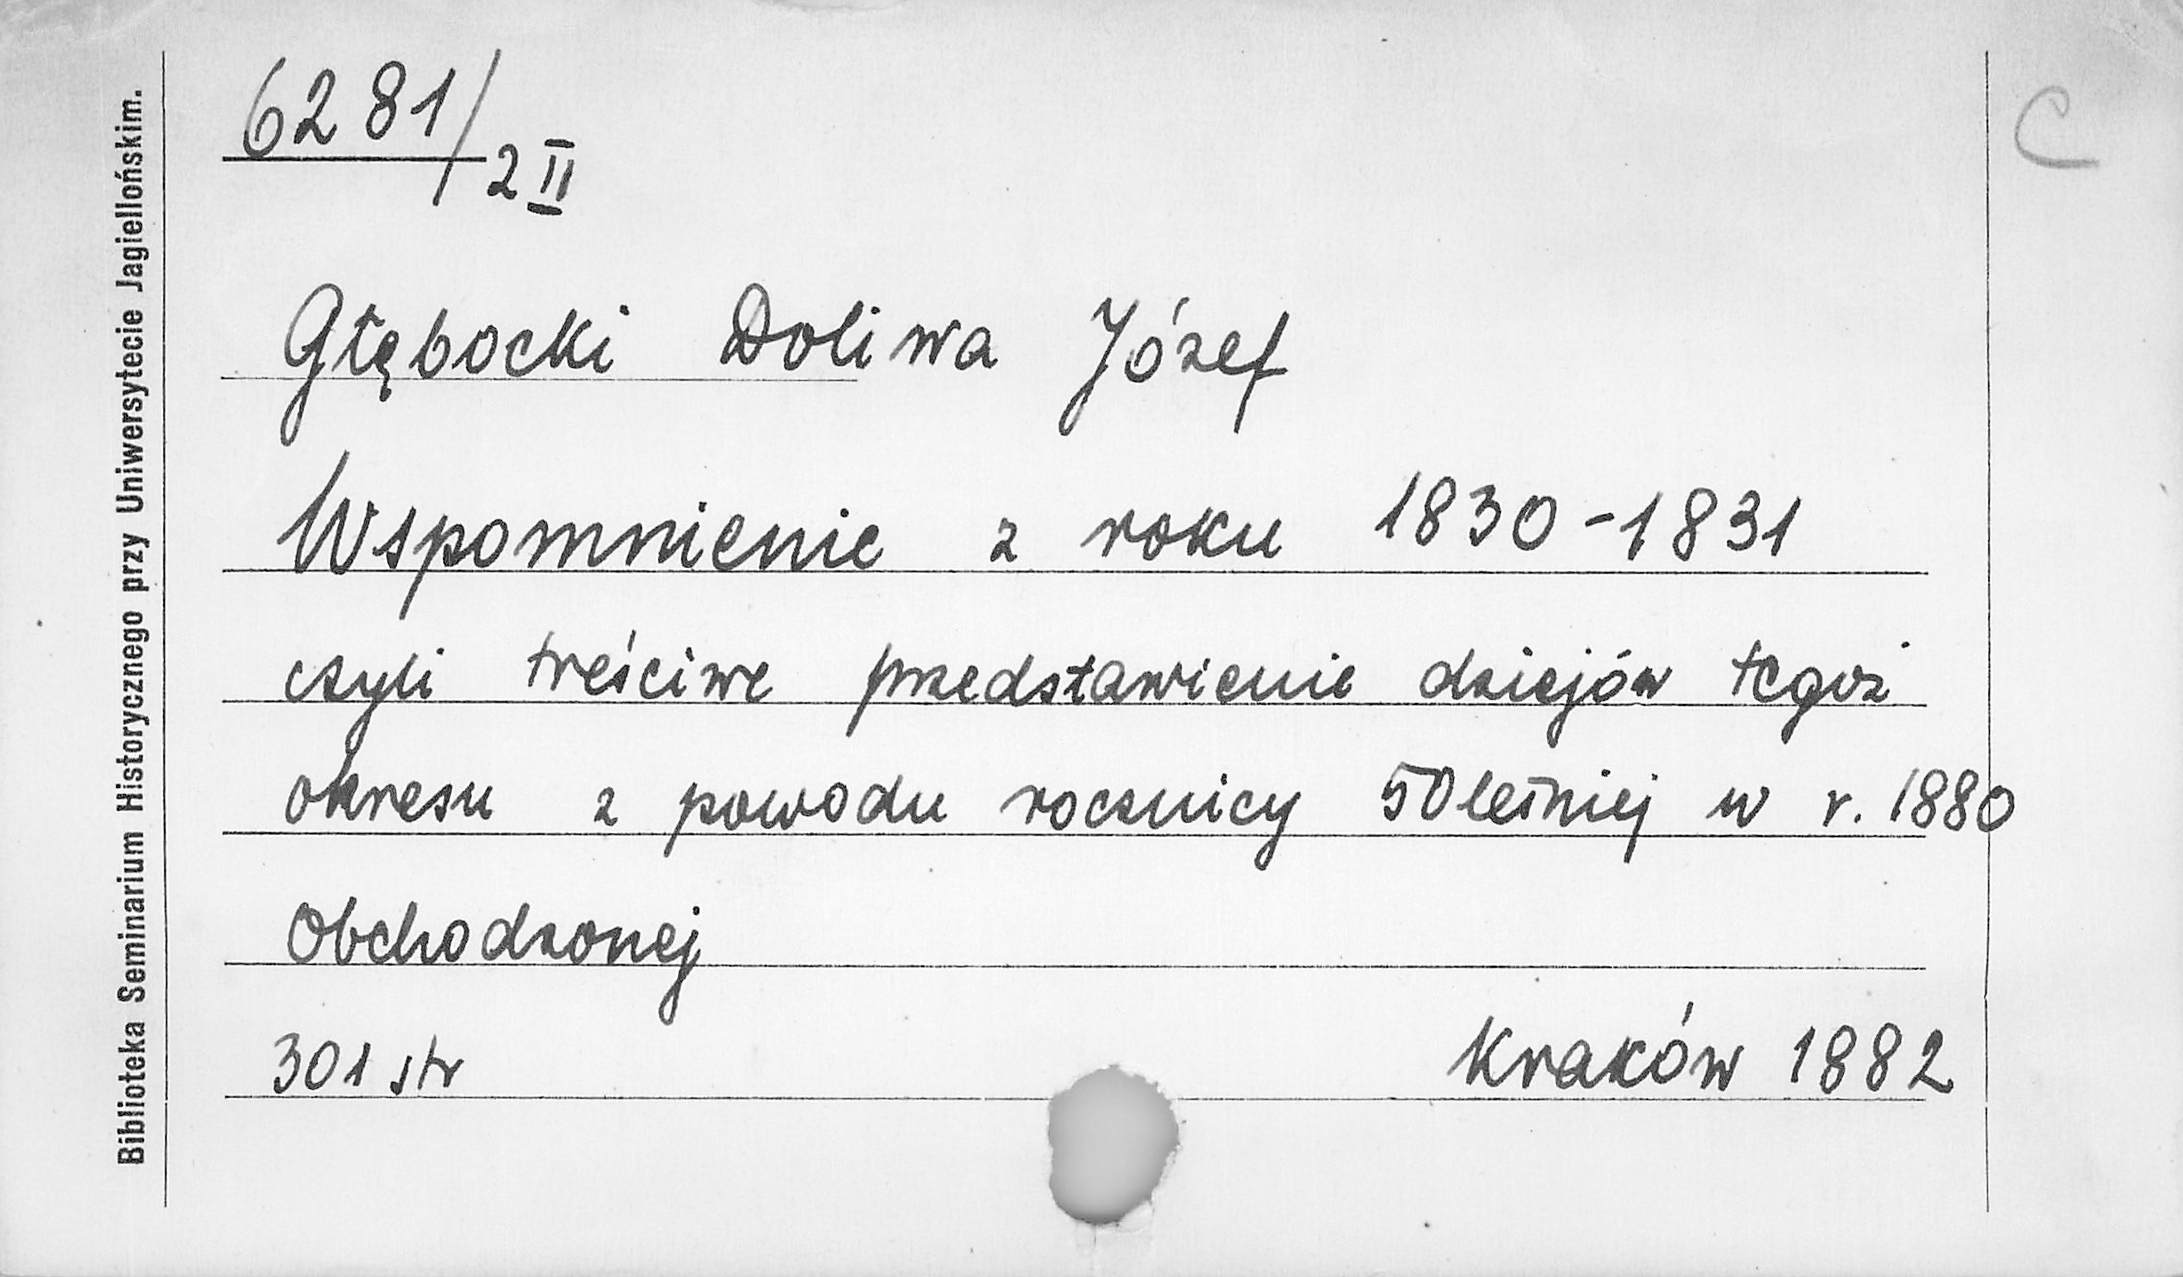 6281/2 II
C
Głębocki Doliwa Józef
Wspomnienie z roku 1830-1831
czyli treściwe przedstawienie dziejów tegoż
okresu z powodu rocznicy 50 letniej w r. 1880
Obchodzonej
301 str
Kraków 1882
Biblioteka Seminarium Historycznego przy Uniwersytecie Jagiellońskim.